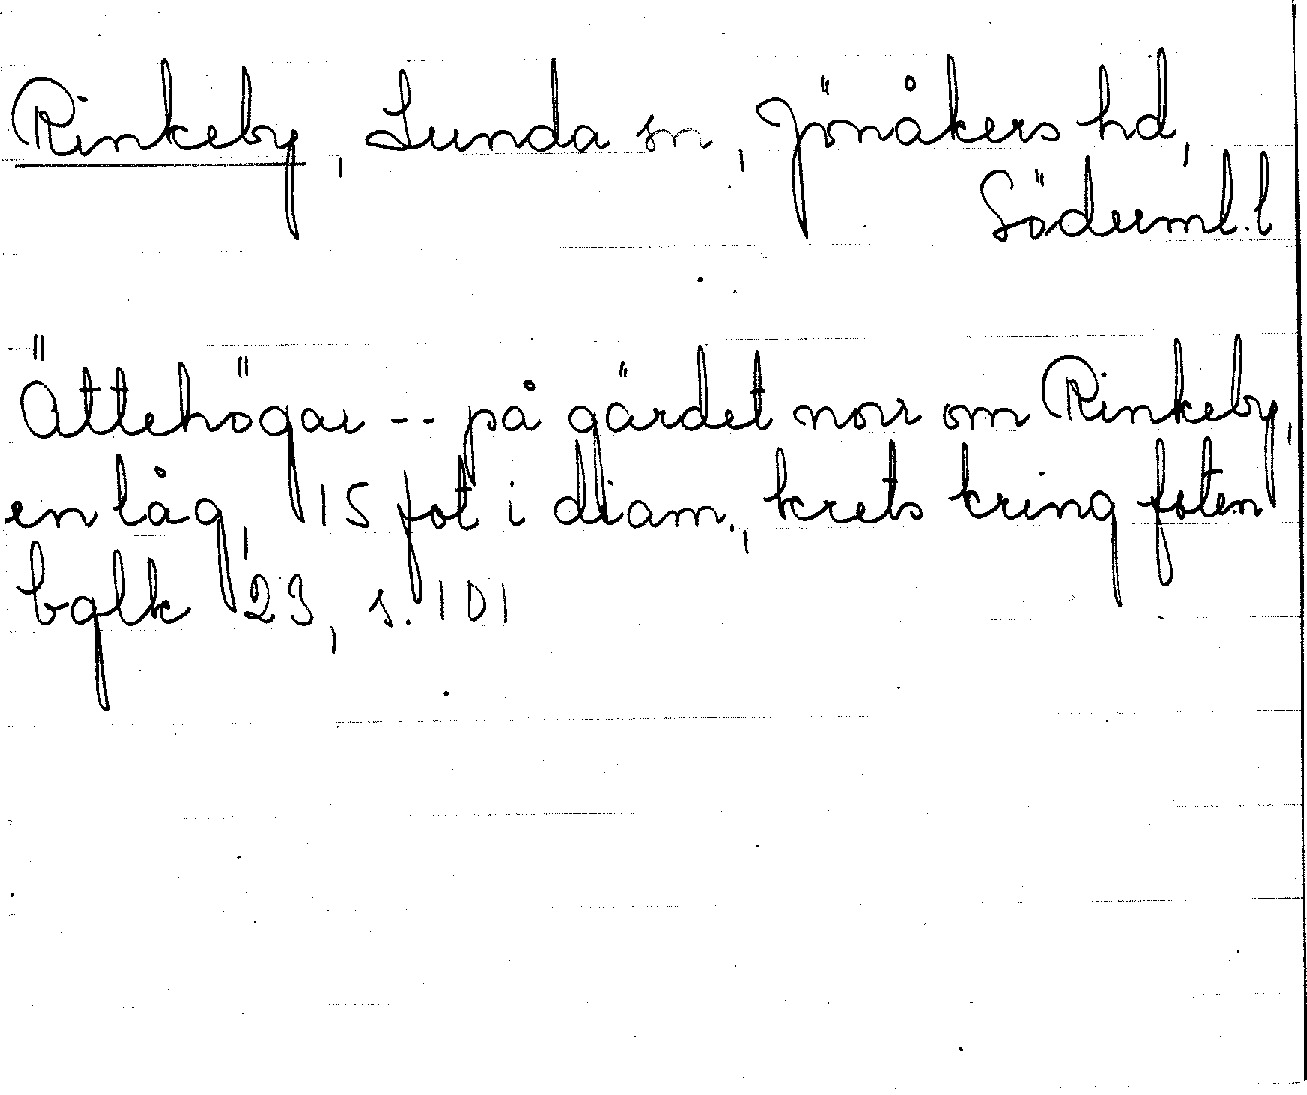 Rinkeby, Lunda sn, Jönåkers hd,
Söderml. l
Ättehögar -- på gärdet norr om Rinkeby,
en låg, 15 fot i diam., krets kring foten
bglk 23, s. 101